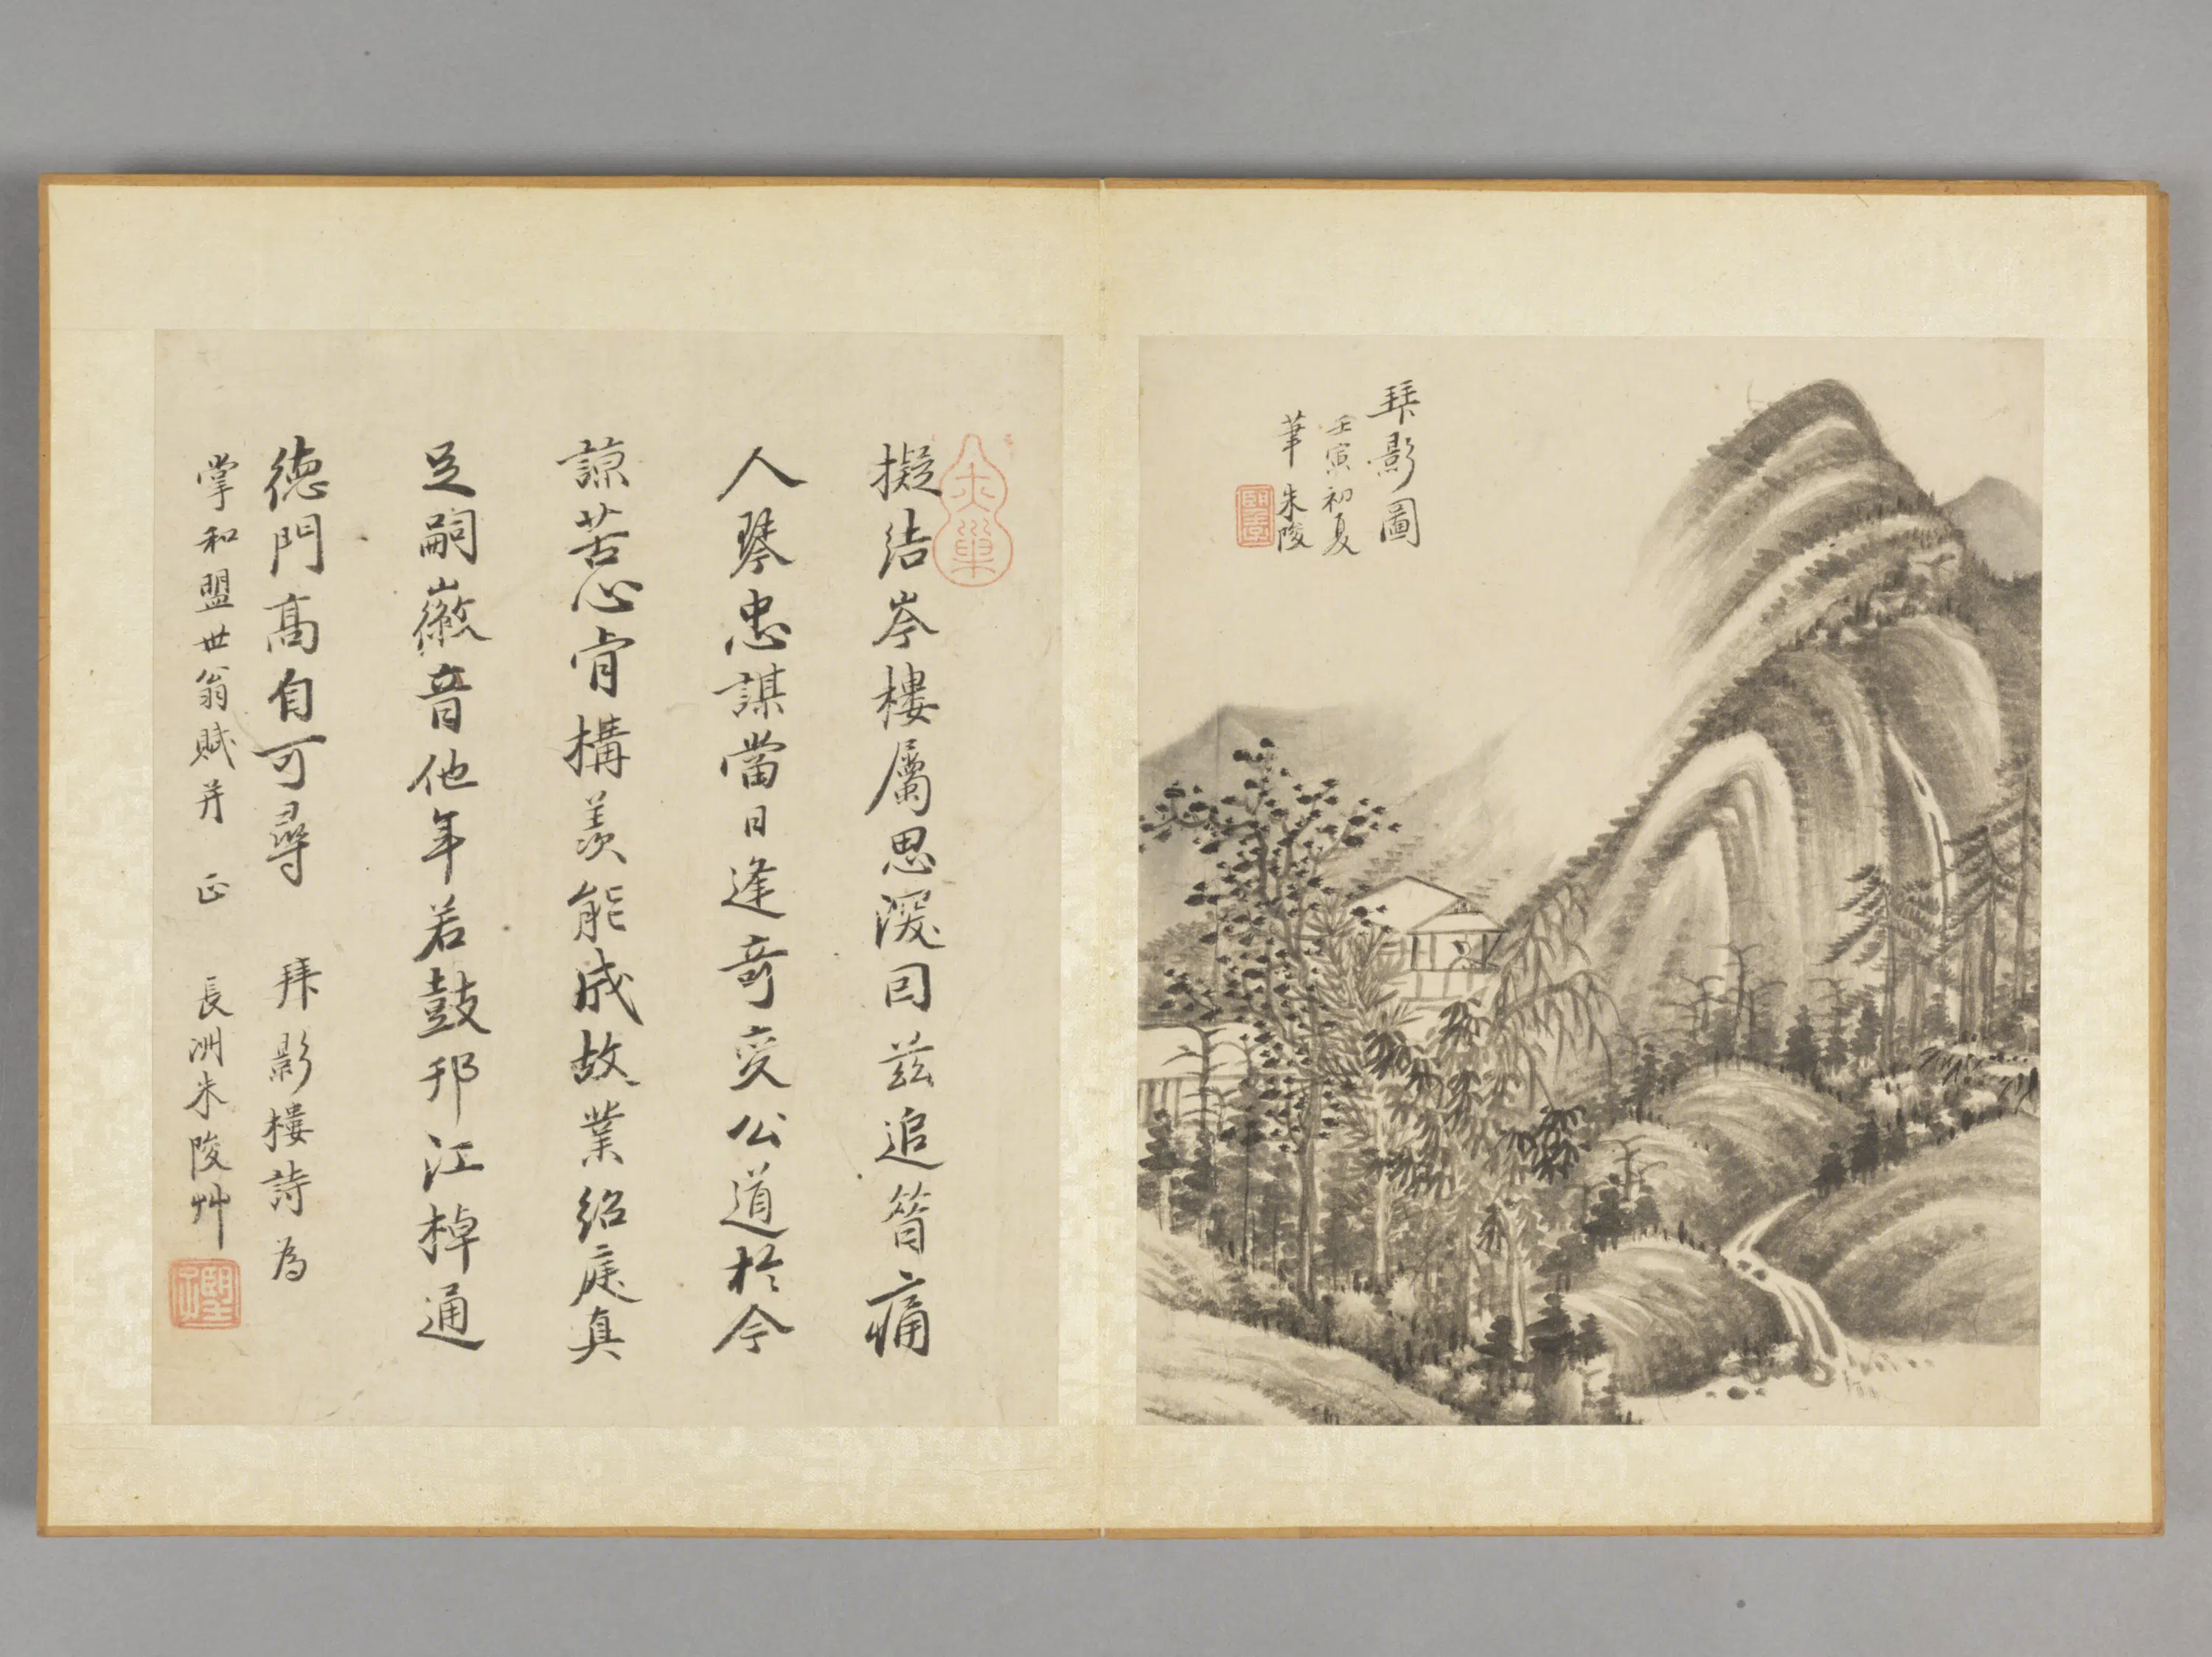 拜影圖
壬寅初夏
筆 朱陵
擬結岑樓屬思深因茲追昝痛
人琴忠謀當日逢奇變公道於今
諒苦心肯構羡能成故業紹庭真
足嗣徽音他年若鼓邗江棹通
德門高自可尋 拜影樓詩為
掌和盟世翁賦并 正 長洲朱陵艸